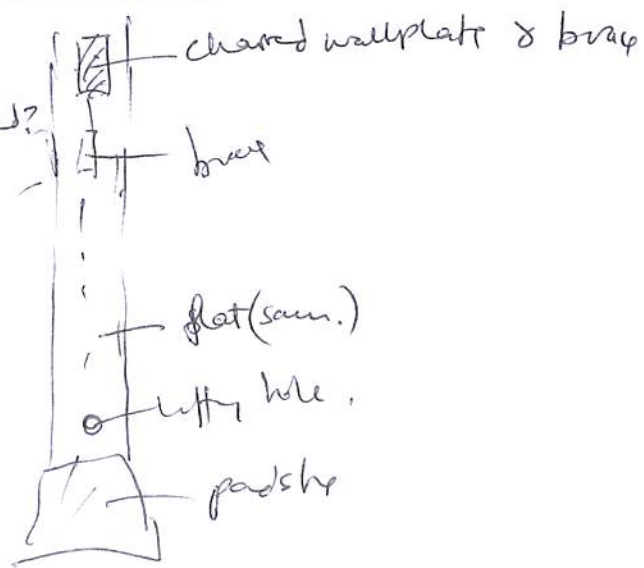 charred wallplate & brace
d?
brace
flat (sawn.)
lifting hole.
padstone